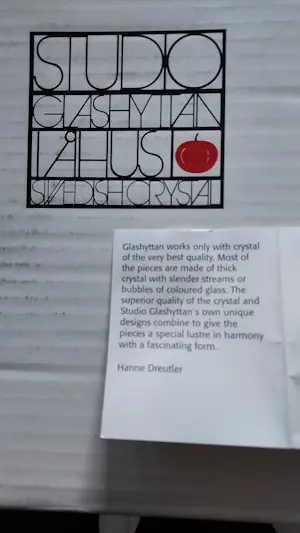 STUDIO
GLASHYTTAN
I ÅHUS
SWEDISH CRYSTAL
Glashyttan works only with crystal
of the very best quality. Most of
the pieces are made of thick
crystal with slender streams or
bubbles of coloured glass. The
superior quality of the crystal and
Studio Glashyttan's own unique
designs combine to give the
pieces a special lustre in harmony
with a fascinating form.
Hanne Dreutler